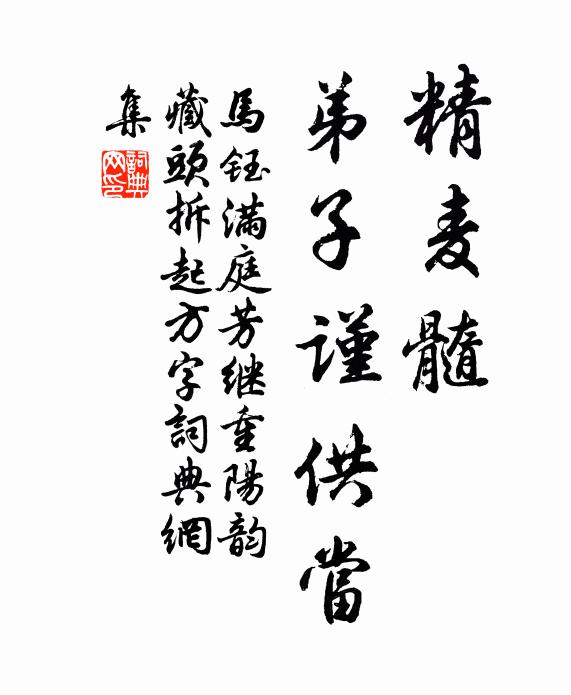 精麦髓
弟子谨供當
馬鈺滿庭芳继重陽韵
藏頭拆起方字詞典網
集
詞典
网印